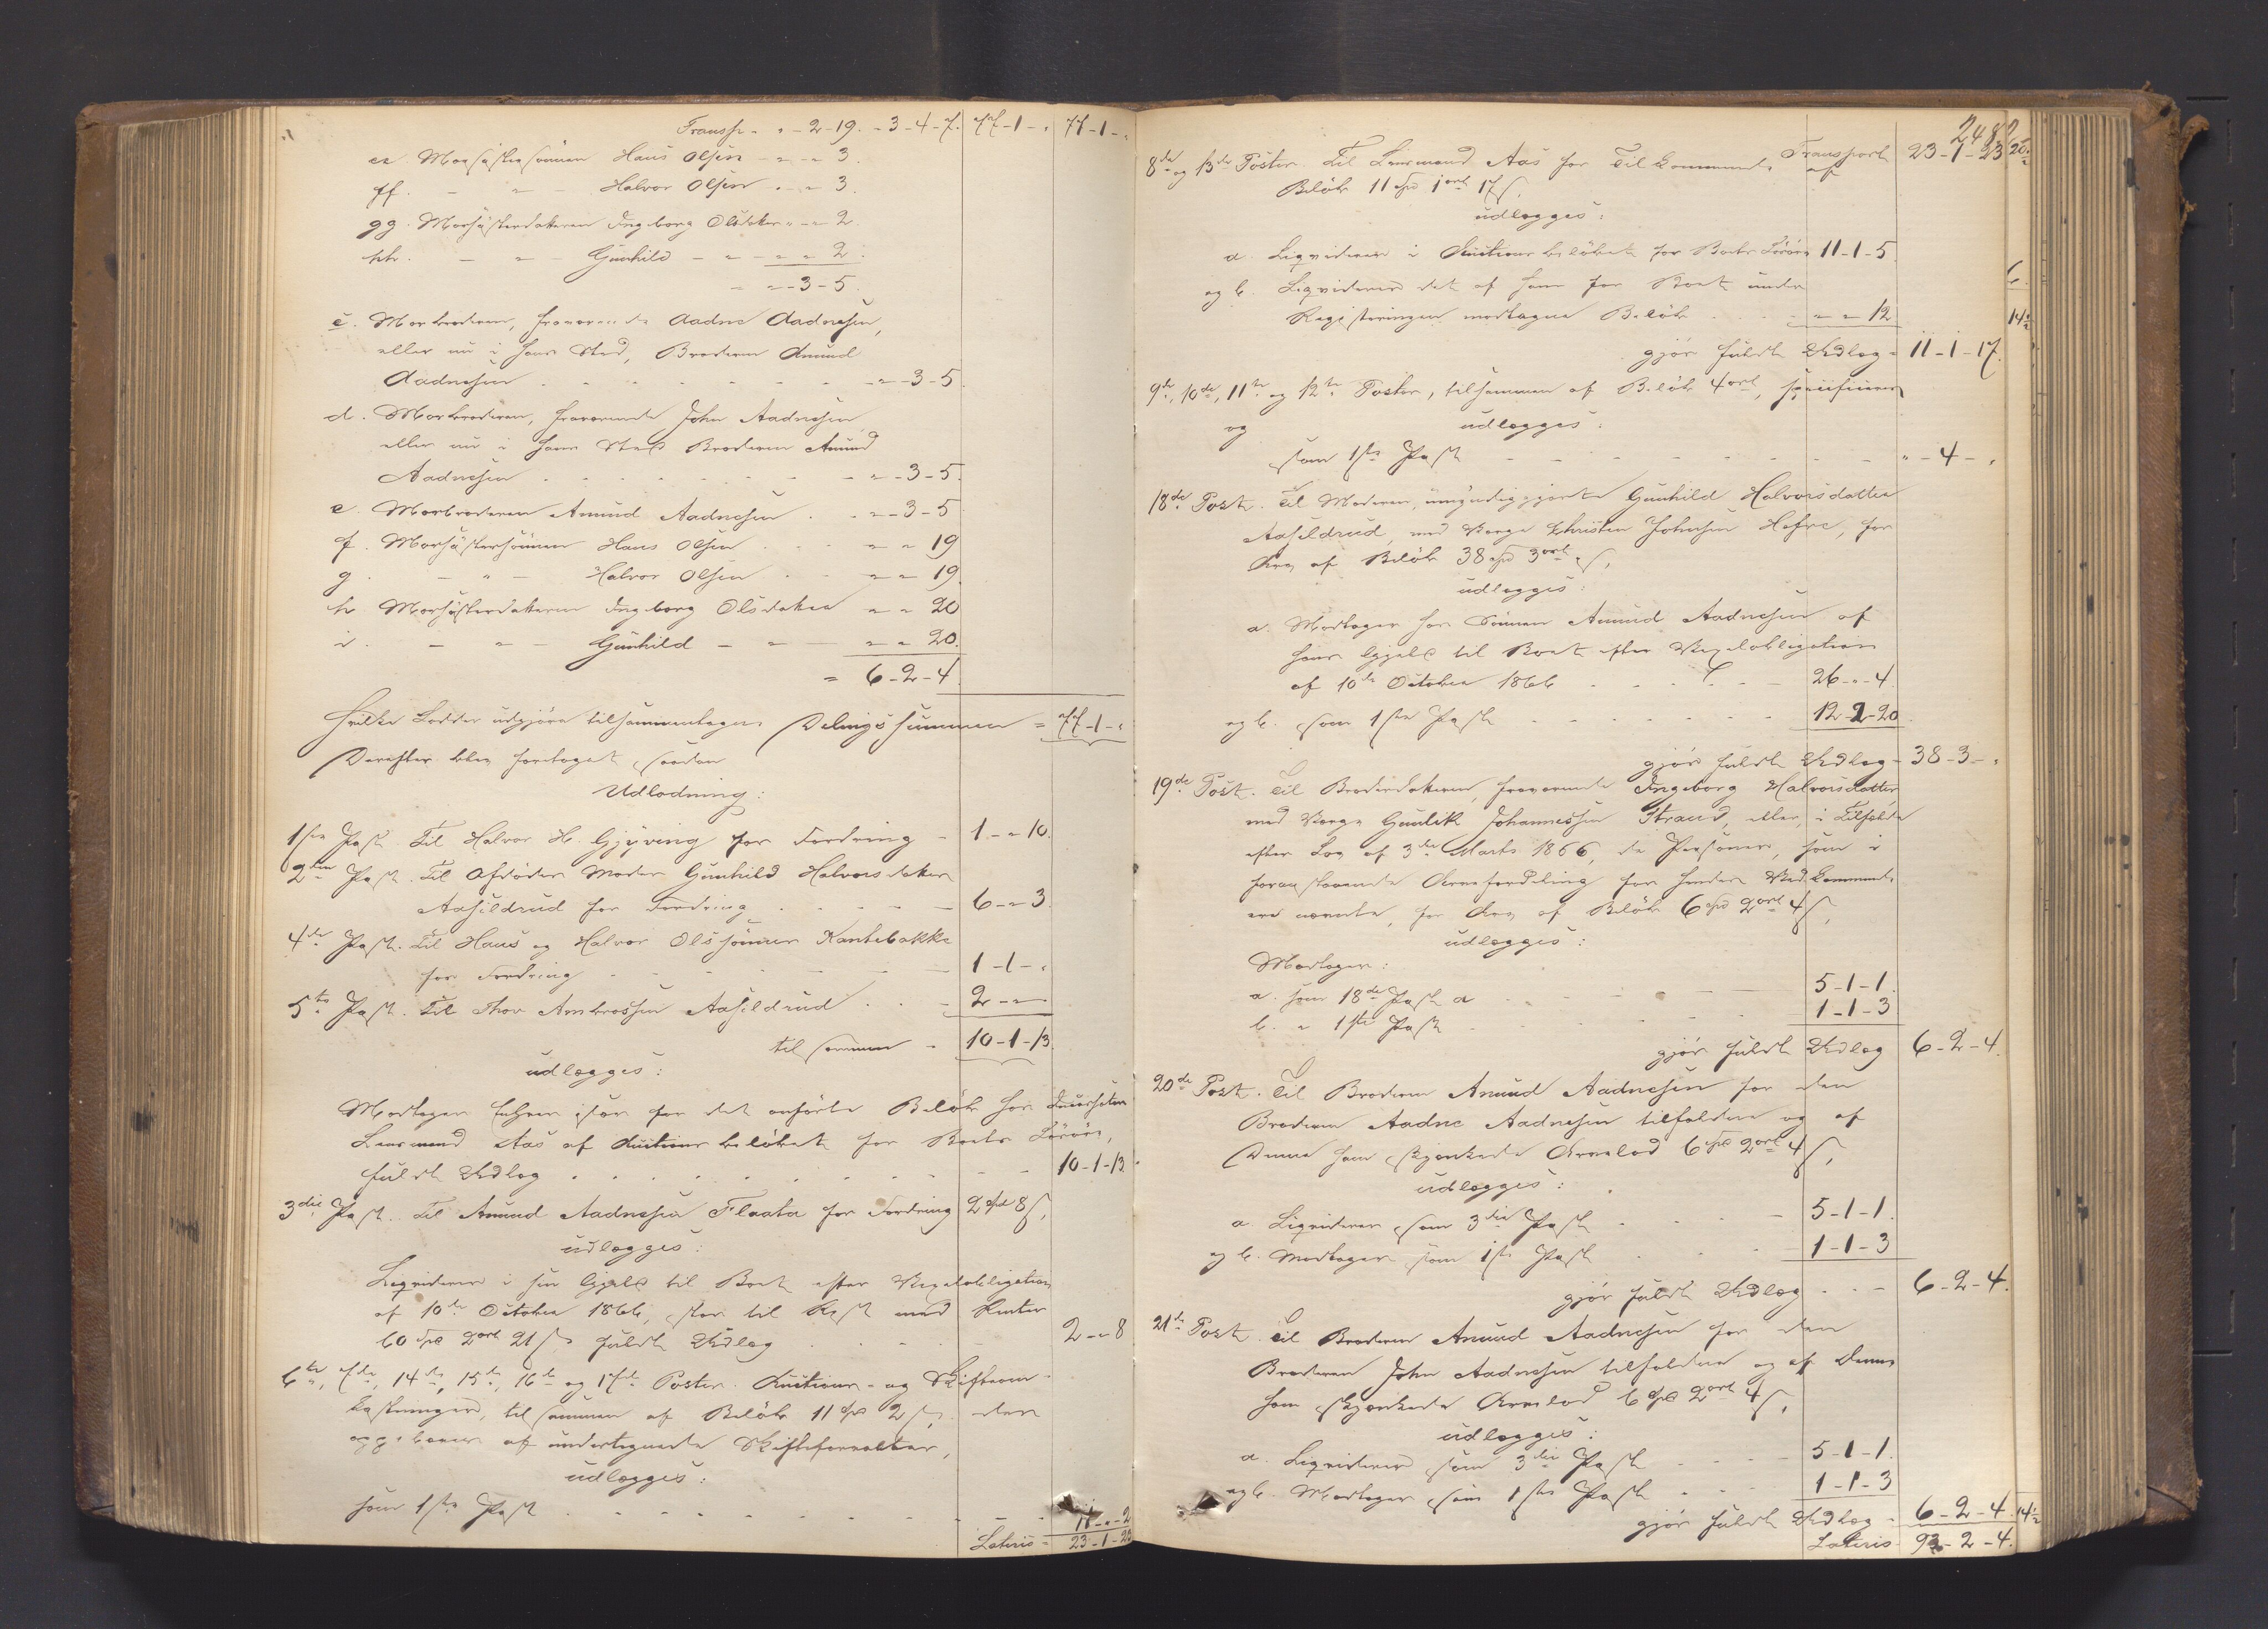 Transp. " - 2 - 19. - 3 - 4 - 7. 77 - 1 - " 77 - 1 - "
ee. Morsøstersønnen Hans Olsen - " - " 3.
ff. - " - Halvor Olsen " - " 3.
gg. Morsøsterdatteren Ingeborg Olsdatter " - " 2.
hh. - " - Gunhild - " - " - " 2.
" - " - 3 - 5.
c. Morbroderen, fraværende Aadne Aadnesen,
eller nu i hans Sted, Broderen Amund
Aadnesen " - 3 - 5.
d. Morbroderen, fraværende John Aadnesen
eller nu i hans Sted Broderen Amund
Aadnesen " - 3 - 5.
e. Morbroderen Amund Aadnesen " - 3 - 5
f. Morsøstersønnen Hans Olsen " - " 19
g. - " - Halvor Olsen " - " 19.
h. Morsøsterdatteren Ingeborg Olsdatter " - " 20
i. - " - Gunhild - " - " - " 20.
= 6 - 2 - 4.
hvilke Lodder udgjøre tilsammentagen Delingssummen = 77 - 1 - "
Derefter blev foretaget saadan
Udlodning:
1ste Post. Til Halvor H. Gjyving for Fordring - 1 - " 10.
2den Post. Til Afdødes Moder Gunhild Halvorsdatter
Aasildrud for Fordring 6 - " 3.
4de Post. Til Hans og Halvor Olssønner Kantebakke
for Fordring 1 - 1 - "
5te Post. Til Thor Ambrossen Aasildrud 2 - " -
tilsammen - 10 - 1 - 13.
udlægges:
Modtager Enhver især for det anførte Beløb hos Incassator
Lensmand Aas af Auctionsbeløbet for Boets Løsøre,
fuldt Udlæg 10 - 1 - 13.
3die Post. Til Amund Aadnesen Flaata for Fordring 2 Spd 8 s,
udlægges:
Liqviderer i sin Gjæld til Boet efter Vexelobligation
af 10de October 1866, stor til Rest med Renter
60 Spd 2 ort 21 s fuldt Udlæg 2 - " 8
6te, 7de, 14de, 15de, 16de og 17de Poster. Auctions- og Skifteom-
kostninger, tilsammen af Beløb 11 Spd 2 s, der
oppebæres af undertegnede Skifteforvalter,
udlægges:
som 1ste Post 11 - " - 2
Lateris = 23 - 1 - 23
248
Transport 23 - 1 - 23
8de og 13de Poster. Til Lensmand Aas for Tilkommende af
Beløb 11 Spd 1 ort 17 s.
udlægges:
a. Liqviderer i Auctionsbeløbet for Boets Løsøre 11 - 1 - 5.
og b. Liqviderer det af ham for Boet under
Registeringen modtagne Beløb " - " 12
gjør fuldt Udlæg = 11 - 1 - 17.
9de, 10de, 11te og 12te Poster, tilsammen af Beløb 4 ort, specificeres
og udlægges:
som 1ste Post " - 4 - "
18de Post. Til Moderen, umyndiggjorte Gunhild Halvorsdatter
Aasildrud, med Værge Christen Johnsen Hafre, for
Arv af Beløb 38 Spd 3 ort " s,
udlægges:
a. Modtager hos Sønnen Amund Aadnesen af
hans Gjæld til Boet efter Vexelobligation
af 10de October 1866 26 - " - 4.
og b. som 1ste Post 12 - 2 - 20.
gjør fuldt Udlæg - 38 - 3 - "
19de Post. Til Broderdatteren, fraværende Ingeborg Halvorsdatter
med Værge Gunlik Johannessen Strand, eller, i Tilfælde
efter Lov af 3die Marts 1866, de Personer, som i
foranstaaende Arvefordeling for hendes Vedkommende
ere nævnte, for Arv af Beløb 6 Spd 2 ort 4 s,
udlægges:
Modtager:
a. som 18de Post a 5 - 1 - 1.
b. " 1ste Post 1 - 1 - 3
gjør fuldt Udlæg 6 - 2 - 4.
20de Post. Til Broderen Amund Aadnesen for den
Broderen Aadne Aadnesen tilfaldne og af
Denne ham skjænkede Arvelod 6 Spd 2 ort 4 s,
udlægges:
a. Liqviderer som 3die Post 5 - 1 - 1.
og b. Modtager som 1ste Post 1 - 1 - 3
gjør fuldt Udlæg 6 - 2 - 4.
21de Post. Til Broderen Amund Aadnesen for den
Broderen John Aadnesen tilfaldne og af Denne
ham skjænkede Arvelod 6 Spd 2 ort 4 s,
udlægges:
a. Liqviderer som 3die Post 5 - 1 - 1.
og b. Modtager som 1ste Post 1 - 1 - 3
gjør fuldt Udlæg - 6 - 2 - 4.
Lateris 92 - 2 - 4.